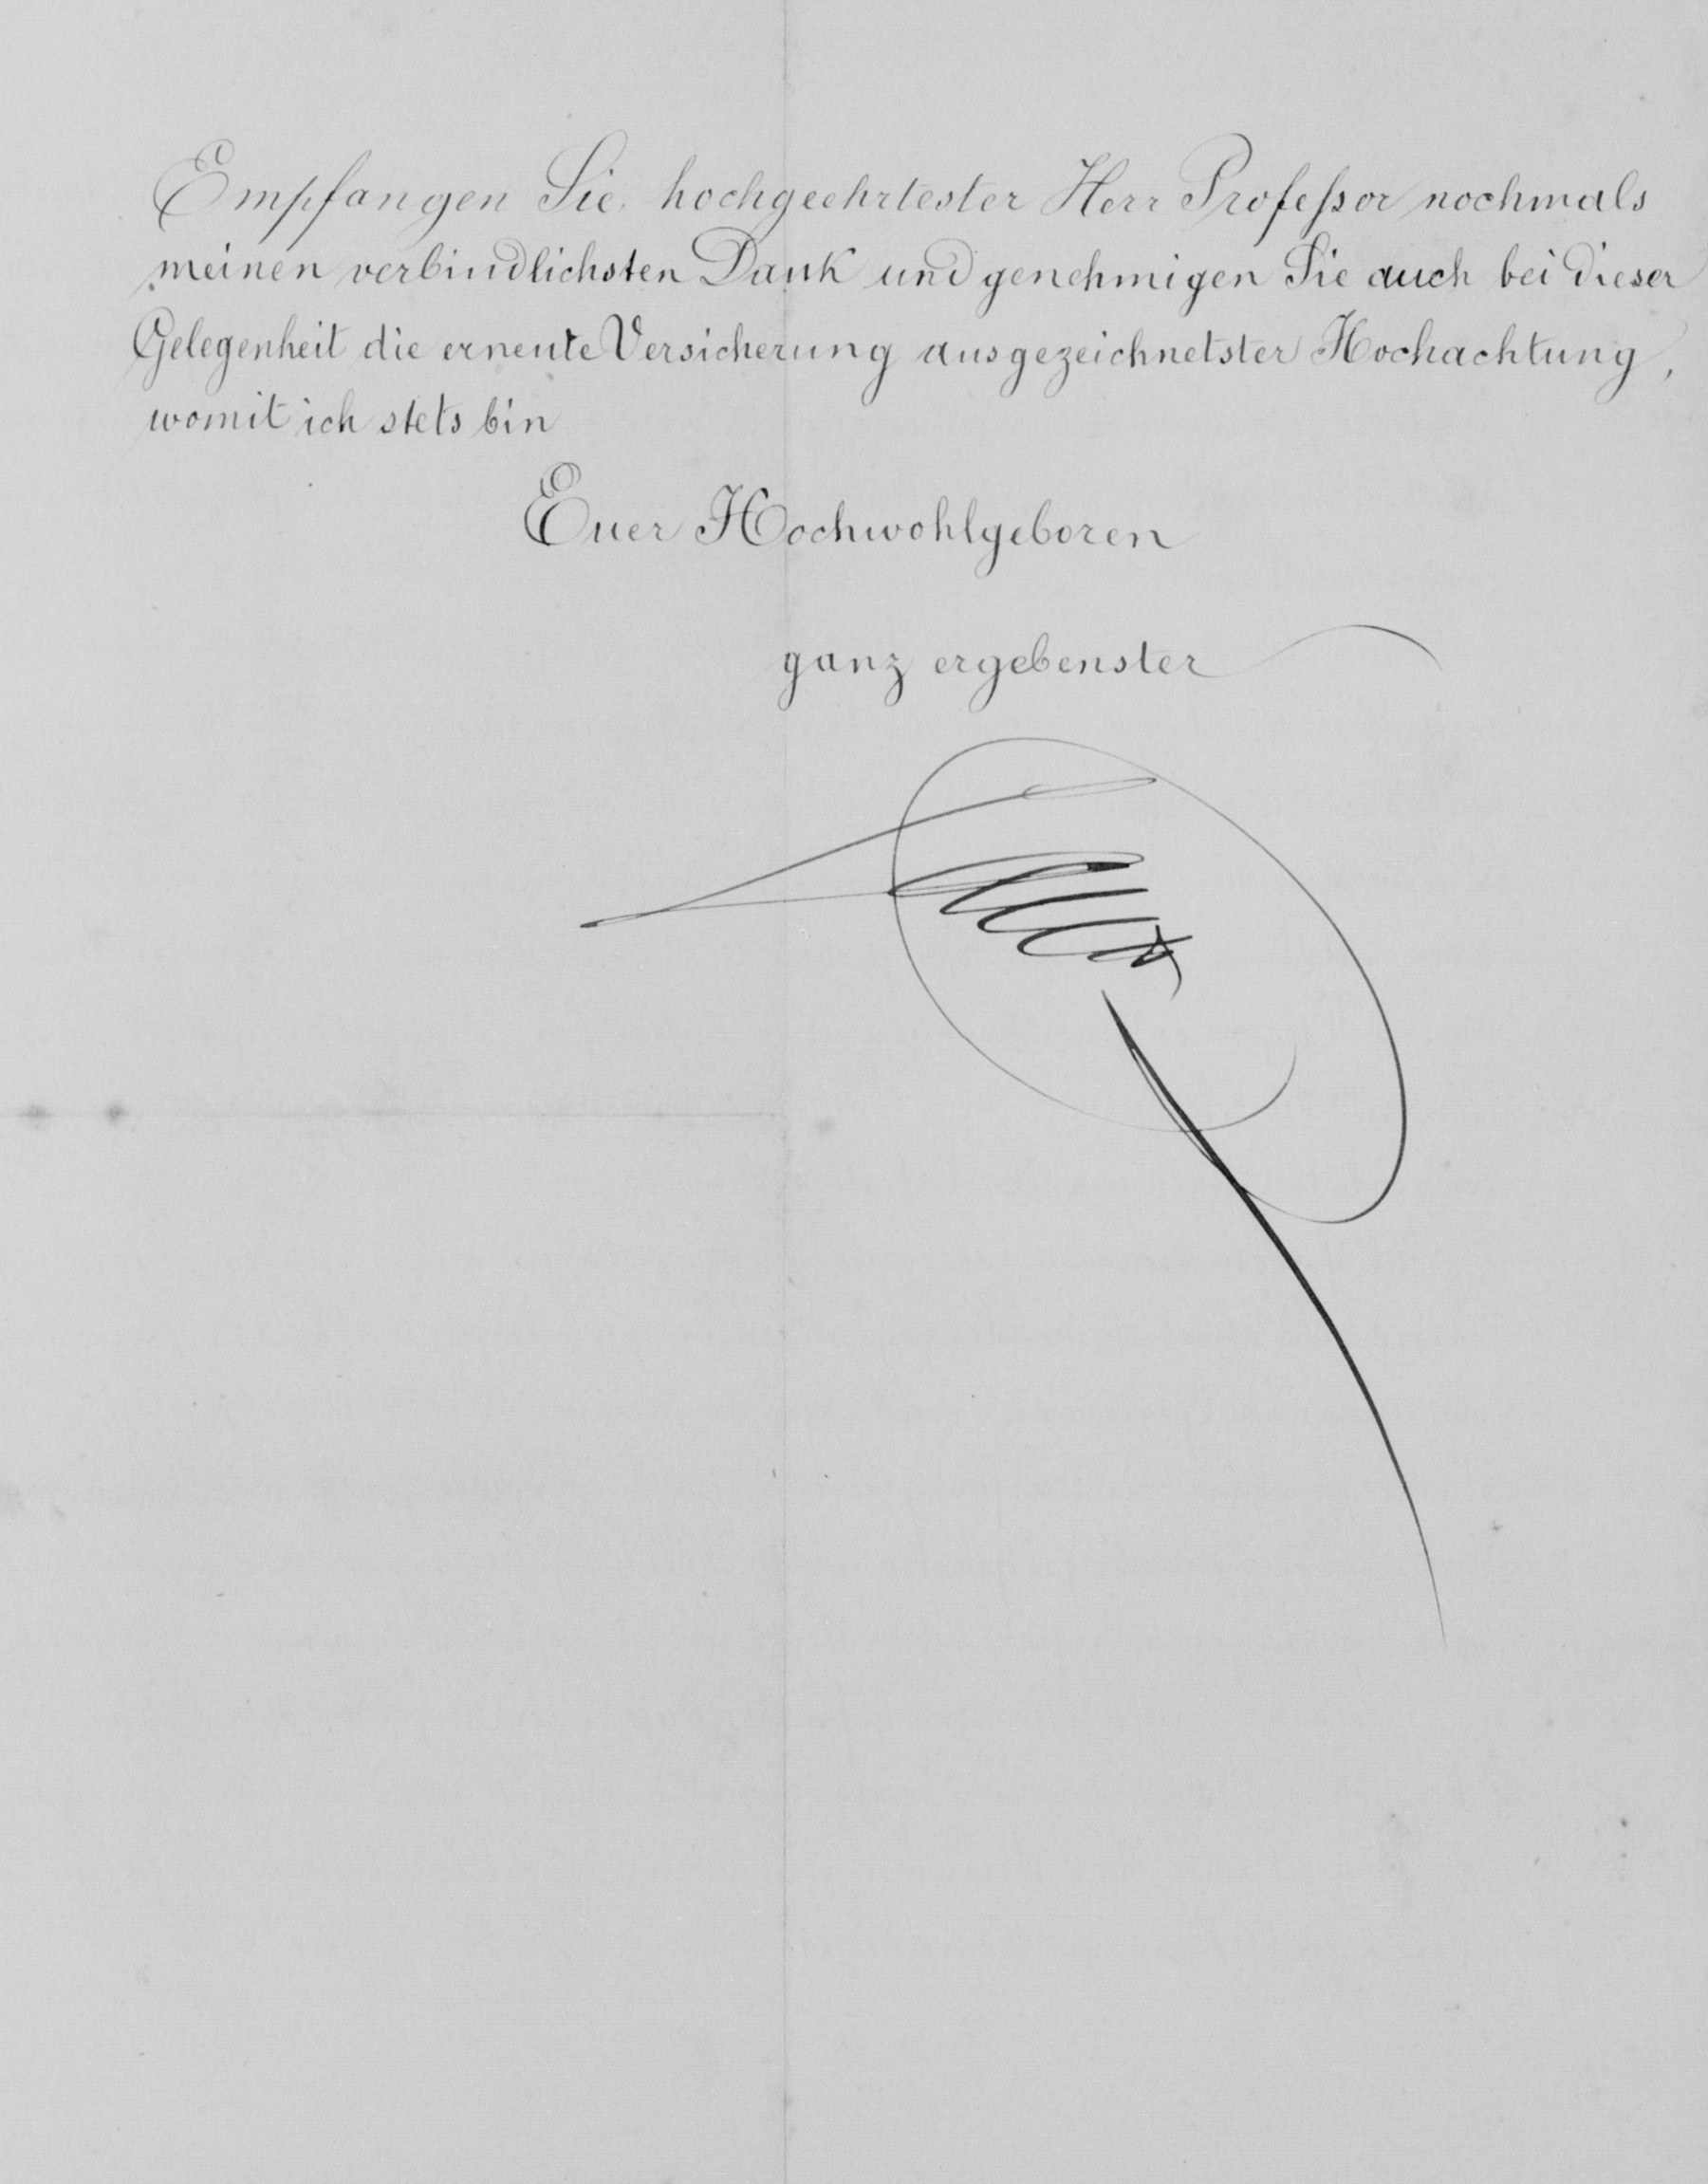 Empfangen Sie, hochgeehrtester Herr Profeſsor nochmals
meinen verbindlichsten Dank und genehmigen Sie auch bei dieser
Gelegenheit die erneute Versicherung ausgezeichnetster Hochachtung,
womit ich stets bin
Euer Hochwohlgeboren
ganz ergebenster